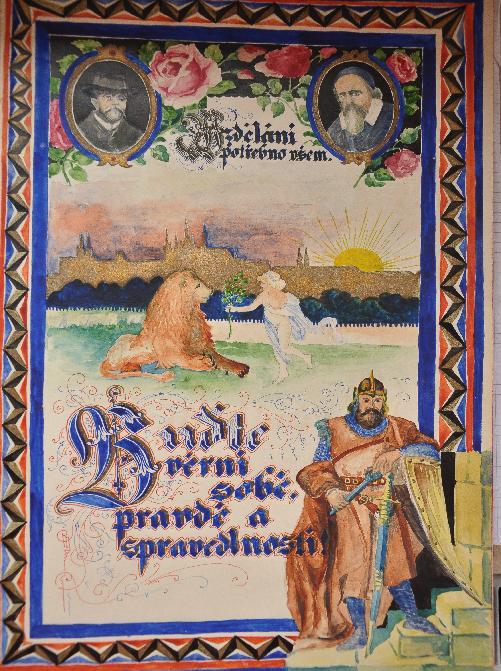 Vzdělání
potřebno všem.
Buďte
věrni
sobě,
pravdě a
spravedlnosti!